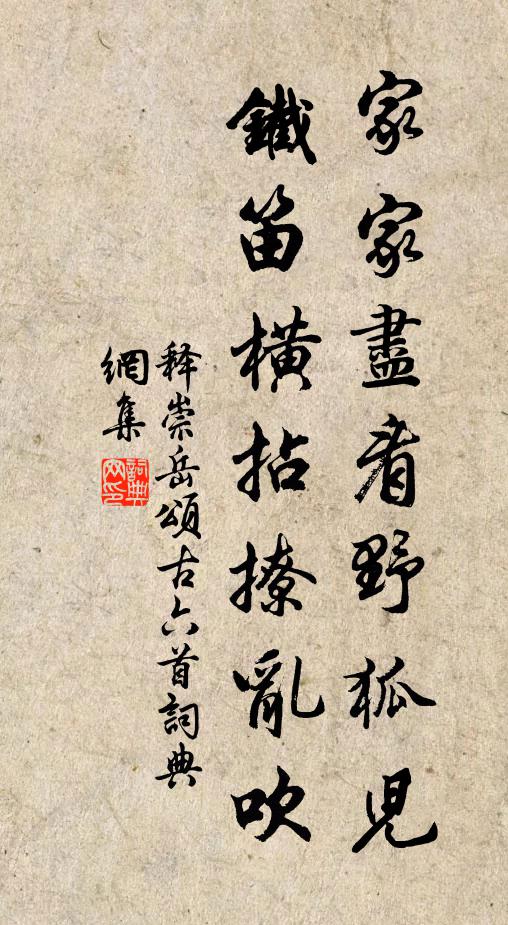 家家盡看野狐兒
鐵笛橫拈撩亂吹
释崇岳頌古六首詞典
網集
詞典
网印